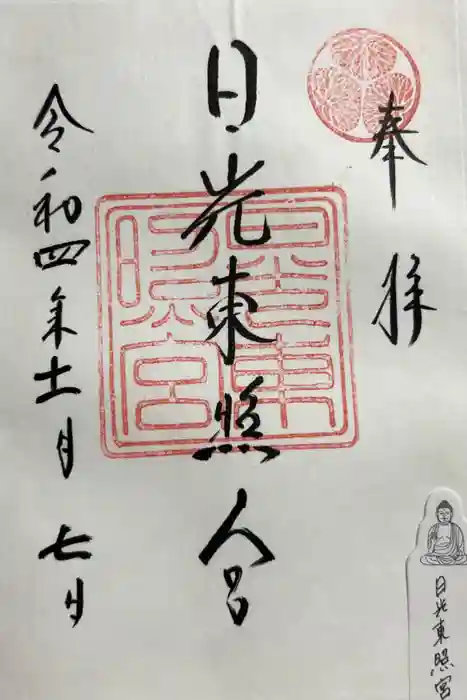 奉拝
日光東照宮
日光東照宮
令和四年十一月七日
日光東照宮